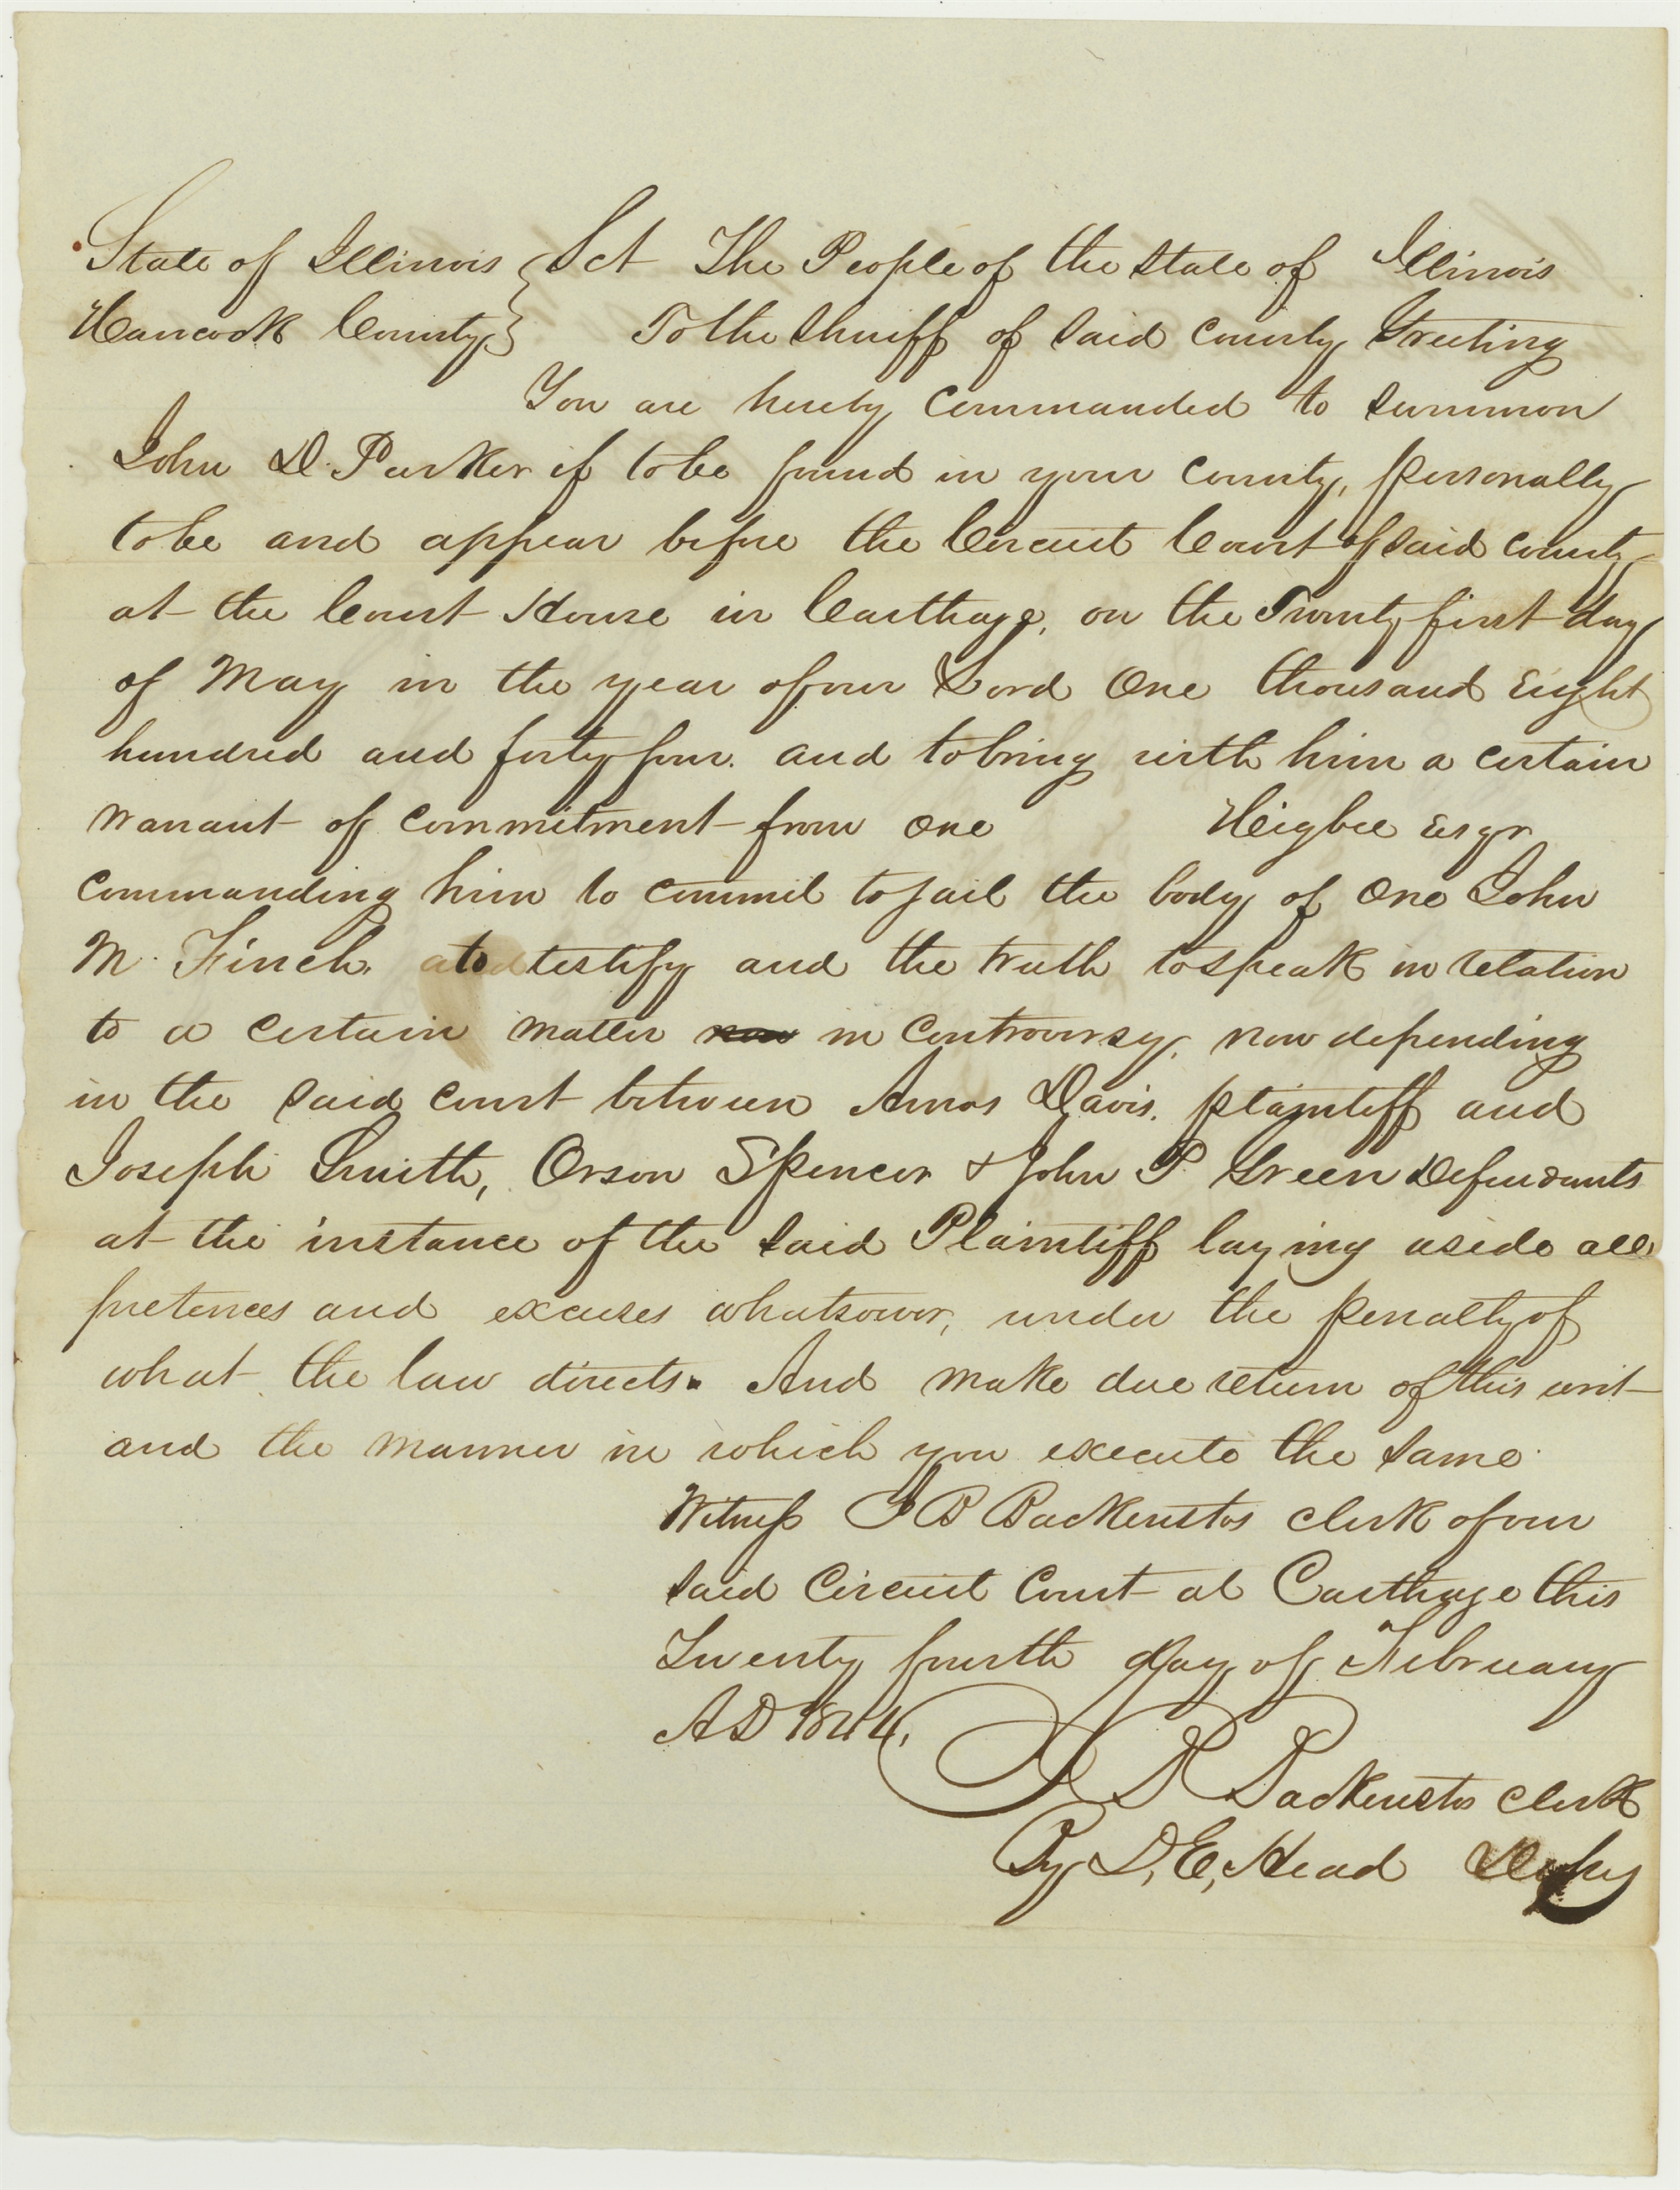 State of Illinois } Sct The People of the State of Illinois
Hancock County } To the Sheriff of said county Greeting
You are hereby commanded to summon
John D. Parker if to be found in your county, personally
to be and appear before the Circuit Court of said county
at the Court House in Carthage, on the Twenty first day
of May in the year of our Lord One thousand Eight
hundred and forty four. and to bring with him a certain
warrant of commitment from one Heigbee Esqr
commanding him to commit to jail the body of one John
M. Finch, to testify and the truth to speak in relation
to a certain matter now in controversy, now depending
in the said court between Amos Davis. plaintiff and
Joseph Smith, Orson Spencer & John P Green Defendants
at the instance of the said Plaintiff laying aside all
pretences and excuses whatsoever, under the penalty of
what the law directs. And make due return of this writ
and the manner in which you execute the same.
Witness J B Backenstos clerk of our
said Circuit Court at Carthage this
Twenty fourth day of February
AD 1844.
J B Backenstos clerk
By D, E, Head Deputy